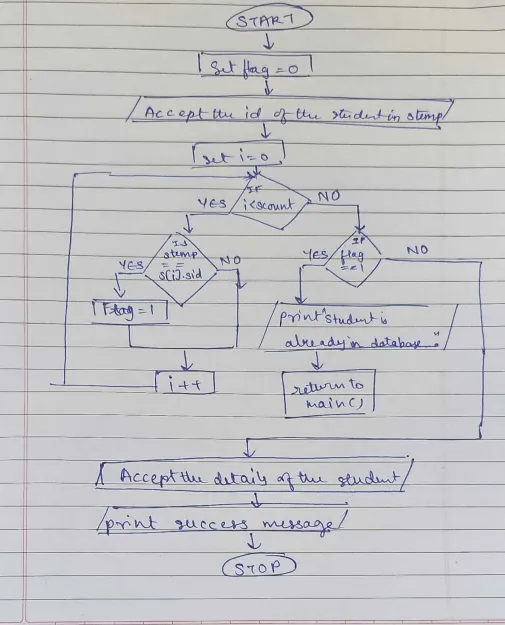 START
Set flag = 0
Accept the id of the student in stemp
set i=0
IF
i<scount
YES
NO
IS
stemp
==
s[i].sid
YES
NO
IF
flag
==1
YES
NO
Flag = 1
print "student is
already in database."
i++
return to
main()
Accept the details of the student
print success message
STOP